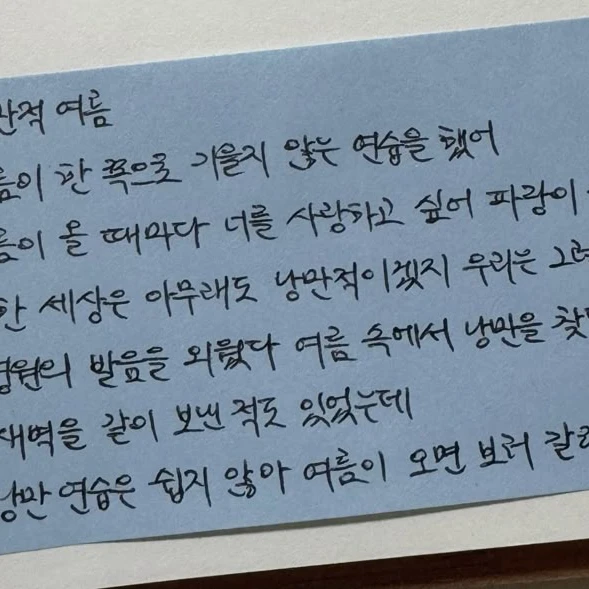 관적 여름
름이 한 쪽으로 기울지 않는 연습을 했어
름이 올 때마다 너를 사랑하고 싶어 파랑이
한 세상은 아무래도 낭만적이겠지 우리는 그런
영원의 발음을 외웠다 여름 속에서 낭만을 찾
새벽을 같이 보낸 적도 있었는데
낭만 연습은 쉽지 않아 여름이 오면 보러 갈